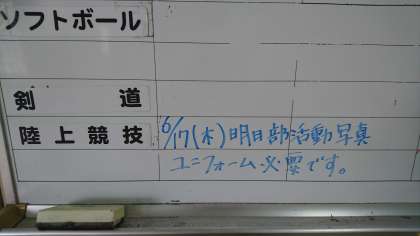 ソフトボール
剣 道
陸上競技 6/17(木)明日部活動早真
ユニフォーム必要です。